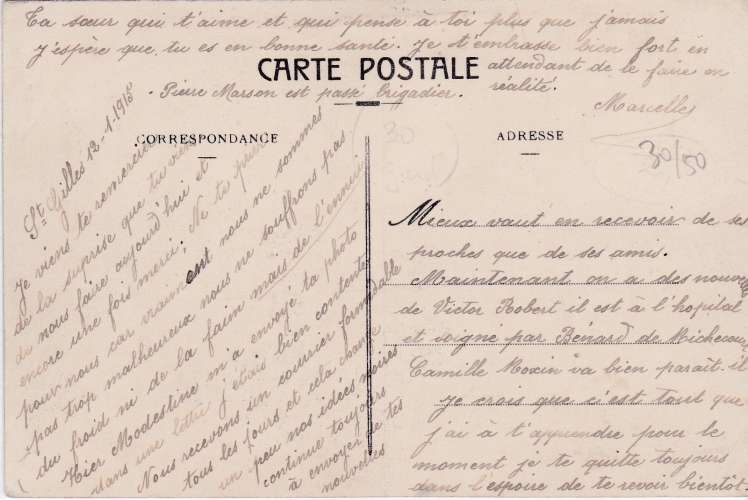 Ta sœur qui t'aime et qui pense à toi plus que jamais
J'espère que tu es en bonne santé. Je t'embrasse bien fort en
attendant de le faire en
réalité.
Marcelle
CARTE POSTALE
Pierre Marson est passé brigadier.
CORRESPONDANCE
ADRESSE
30/50
St Gilles 12-1-1915
Je viens te remercier
de la suprise que tu viens
de nous faire aujourd'hui et
encore une fois merci; Ne te
pour nous car vraiment nous ne sommes
pas trop malheureux nous ne souffrons pas
du froid ni de la faim mais de l'ennui
Hier Modestine m'a envoyé ta photo
dans une lettre j'étais bien contente
Nous recevons un courrier formidable
tous les jours et cela change
un peu nos idées noires
continue toujours
à envoyer de tes
nouvelles
Mieux vaut en recevoir de ses
proches que de ses amis.
Maintenant on a des nouvelles
de Victor Robert il est à l'hopital
et soigné par Bénard de
Camille va bien parait. il
Je crois que c'est tout que
j'ai à t'apprendre pour le
moment je te quitte toujours
dans l'espoire de te revoir bientôt.